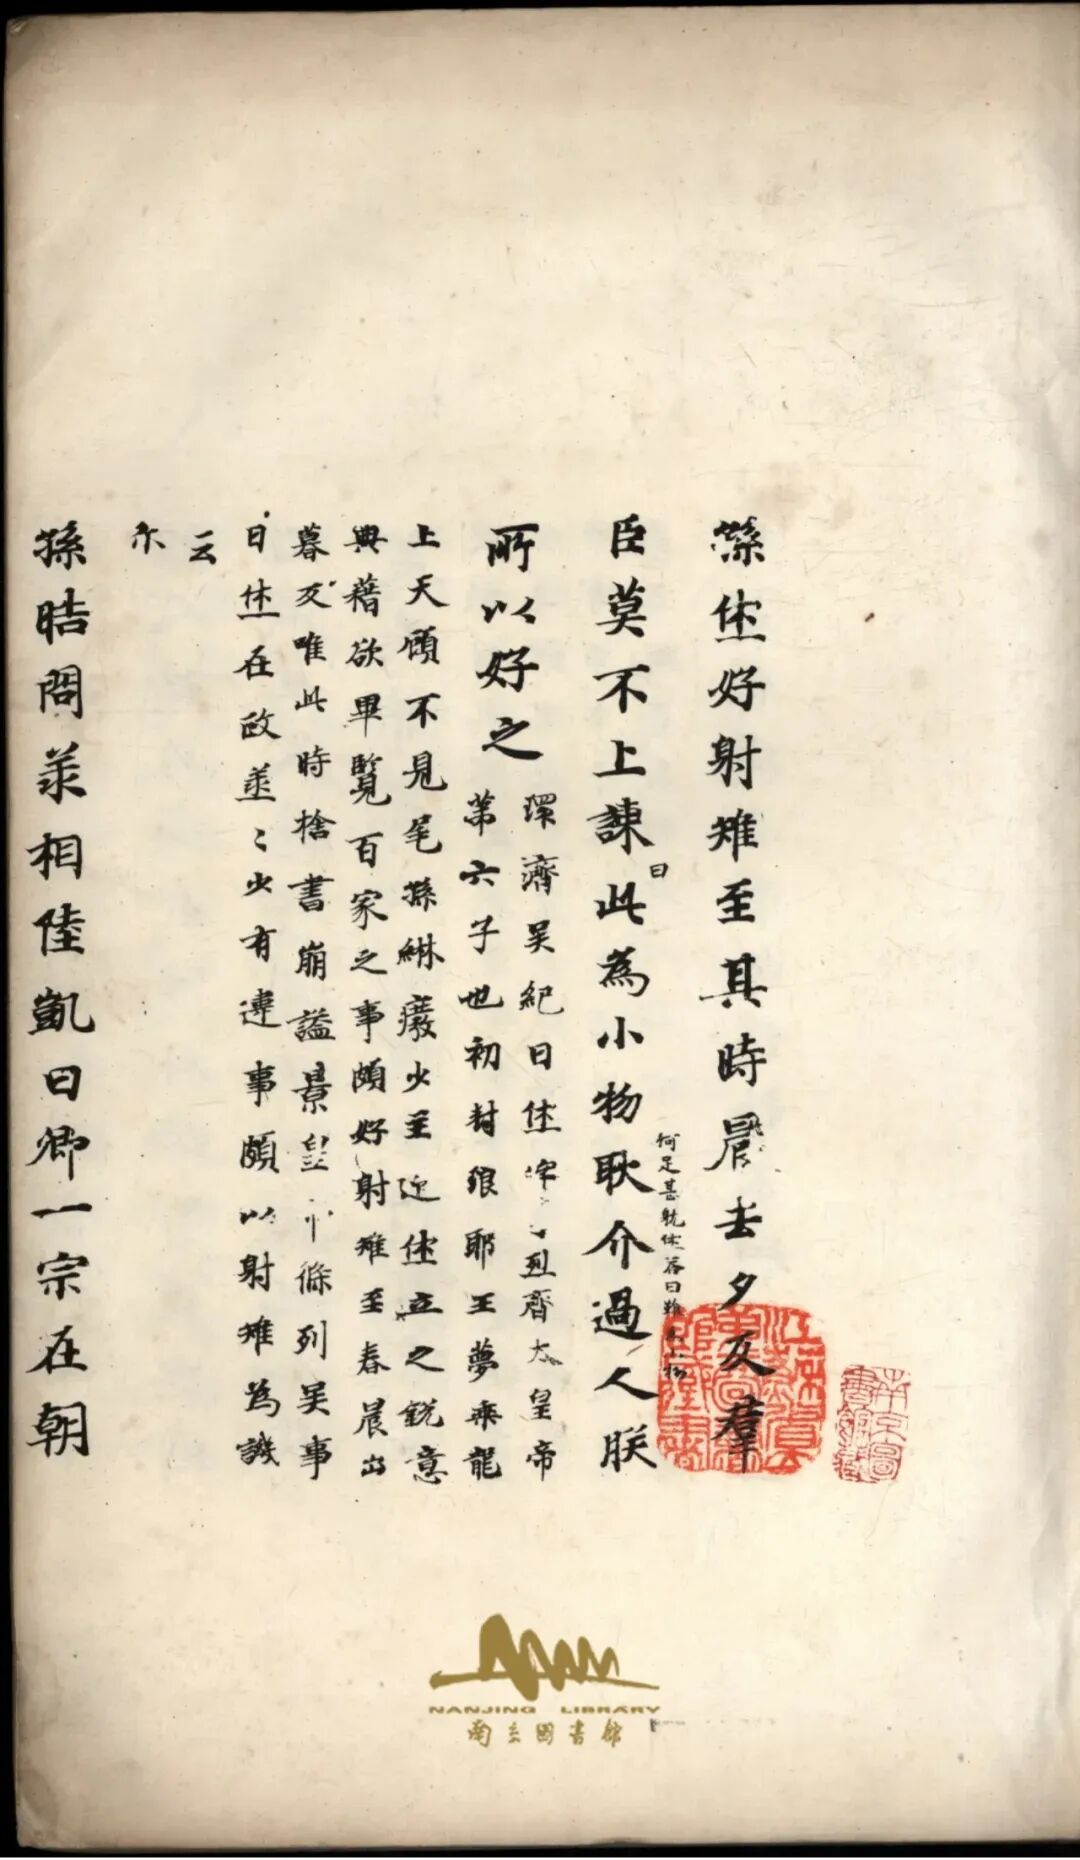 孫烋好射雉至其時晨去夕反羣
何足甚躭休荅曰雖為小物
曰
臣莫不上諫此為小物耿介過人朕
所以好之
環濟吳紀曰烋字烈齊大皇帝
第六子也初封琅耶王夢乗龍
上天顧不見尾孫綝癈少主迎烋立之銳意
典藉欲畢覽百家之事頗好射雉至春晨出
暮反唯此時捨書崩謚景皇條列吳事
曰烋在政烝〻少有違事頗以射雉為譏
云
尒
孫晧問丞相陸凱曰卿一宗在朝
南京圖書館藏
NANJING LIBRARY
南京圖書館